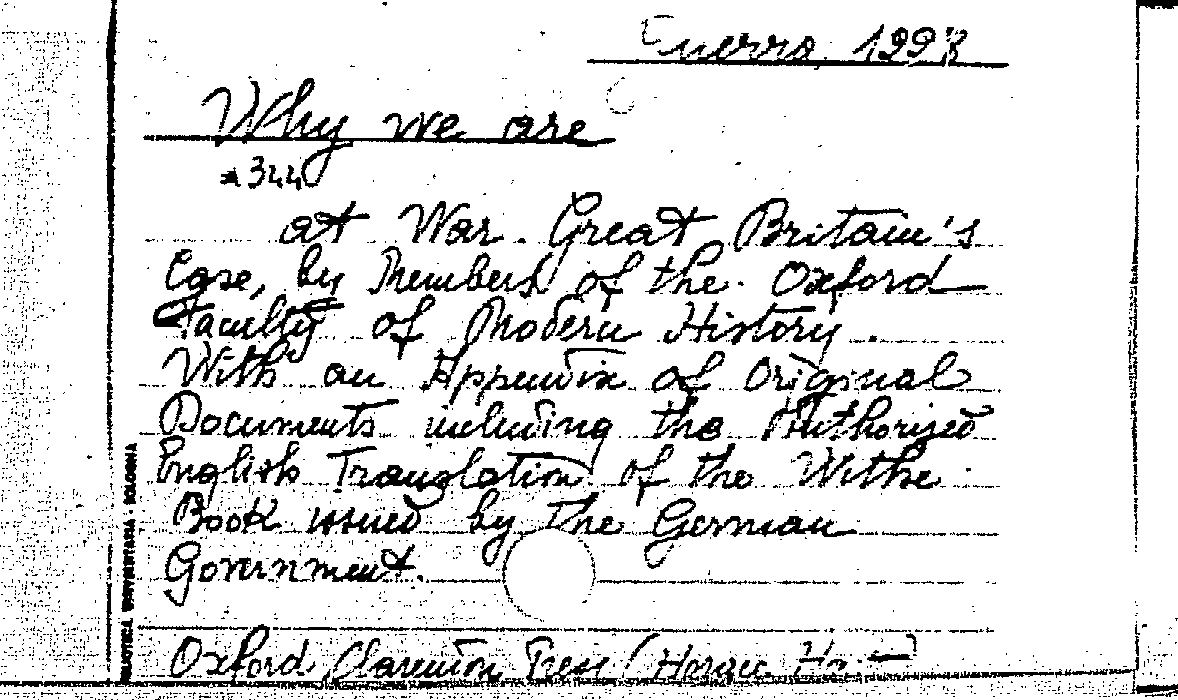 Guerra, 1998
Why we are
*344
at War. Great Britain's
Case, by Members of the Oxford
Faculty of Modern History.
With an Appendix of Original
Documents including the Authorized
English Translation of the Withe
Book issued by the German
Government.
Oxford Clarendon Press (Horace
BIBLIOTECA UNIVERSITARIA - BOLOGNA